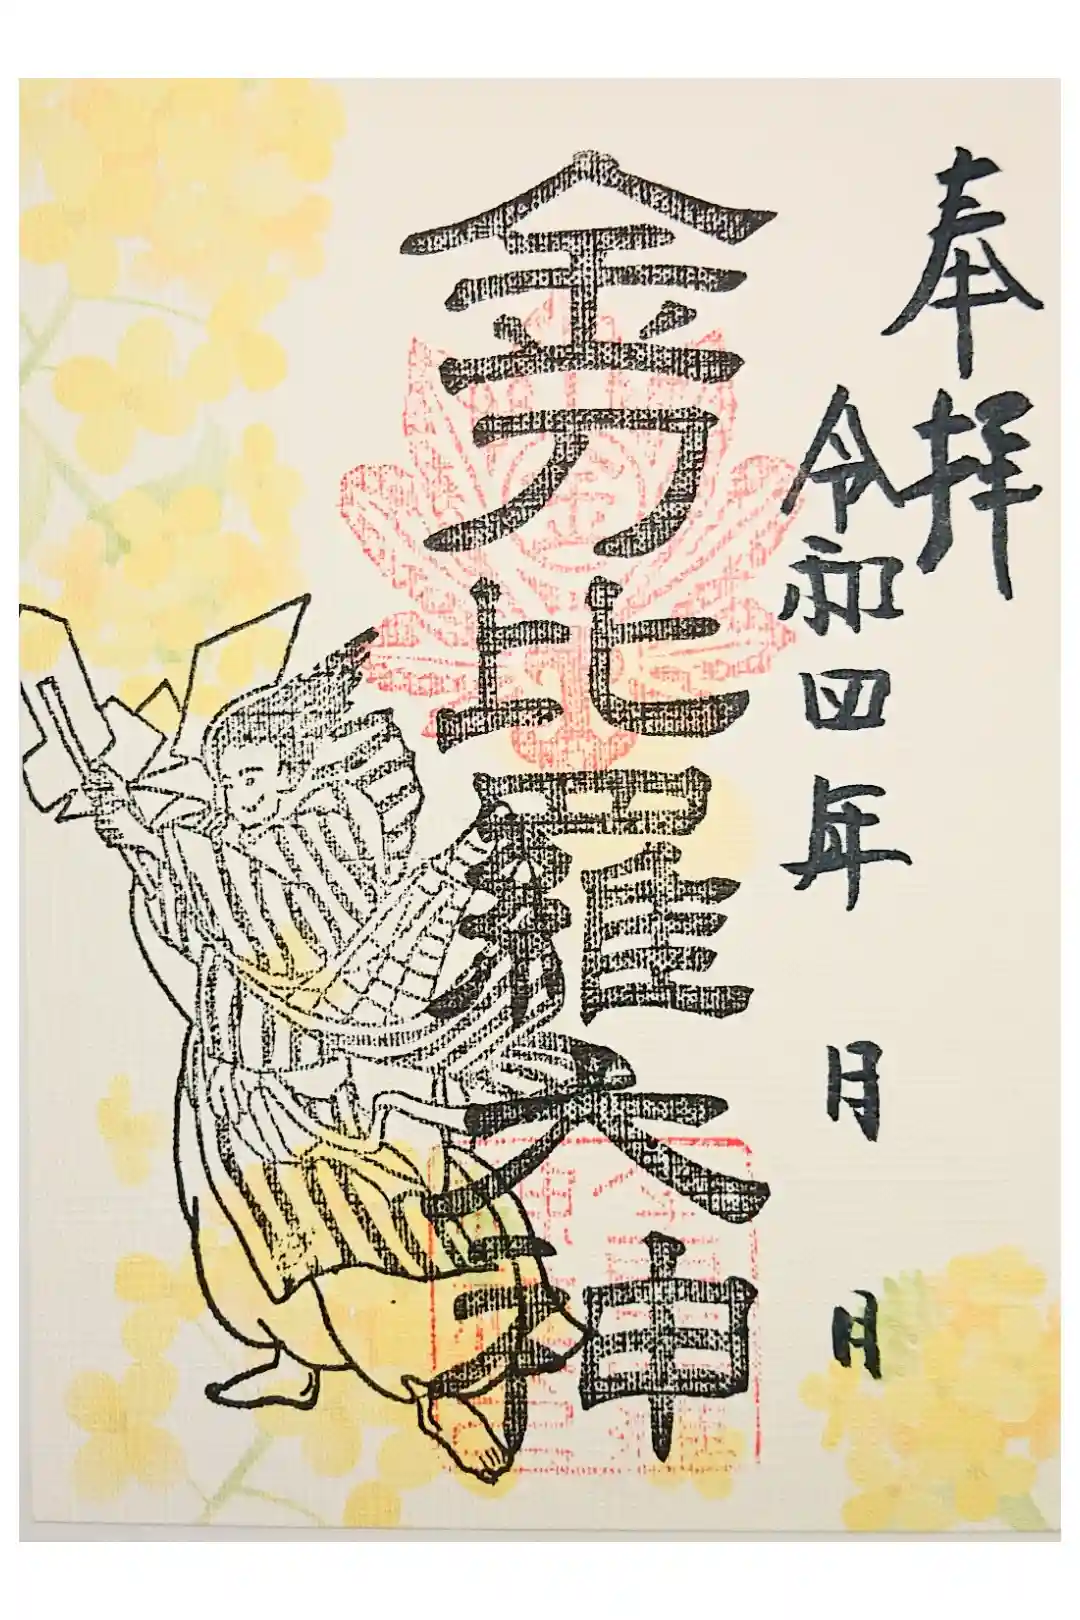 奉拝
令和四年　月　日
金刀比羅大神